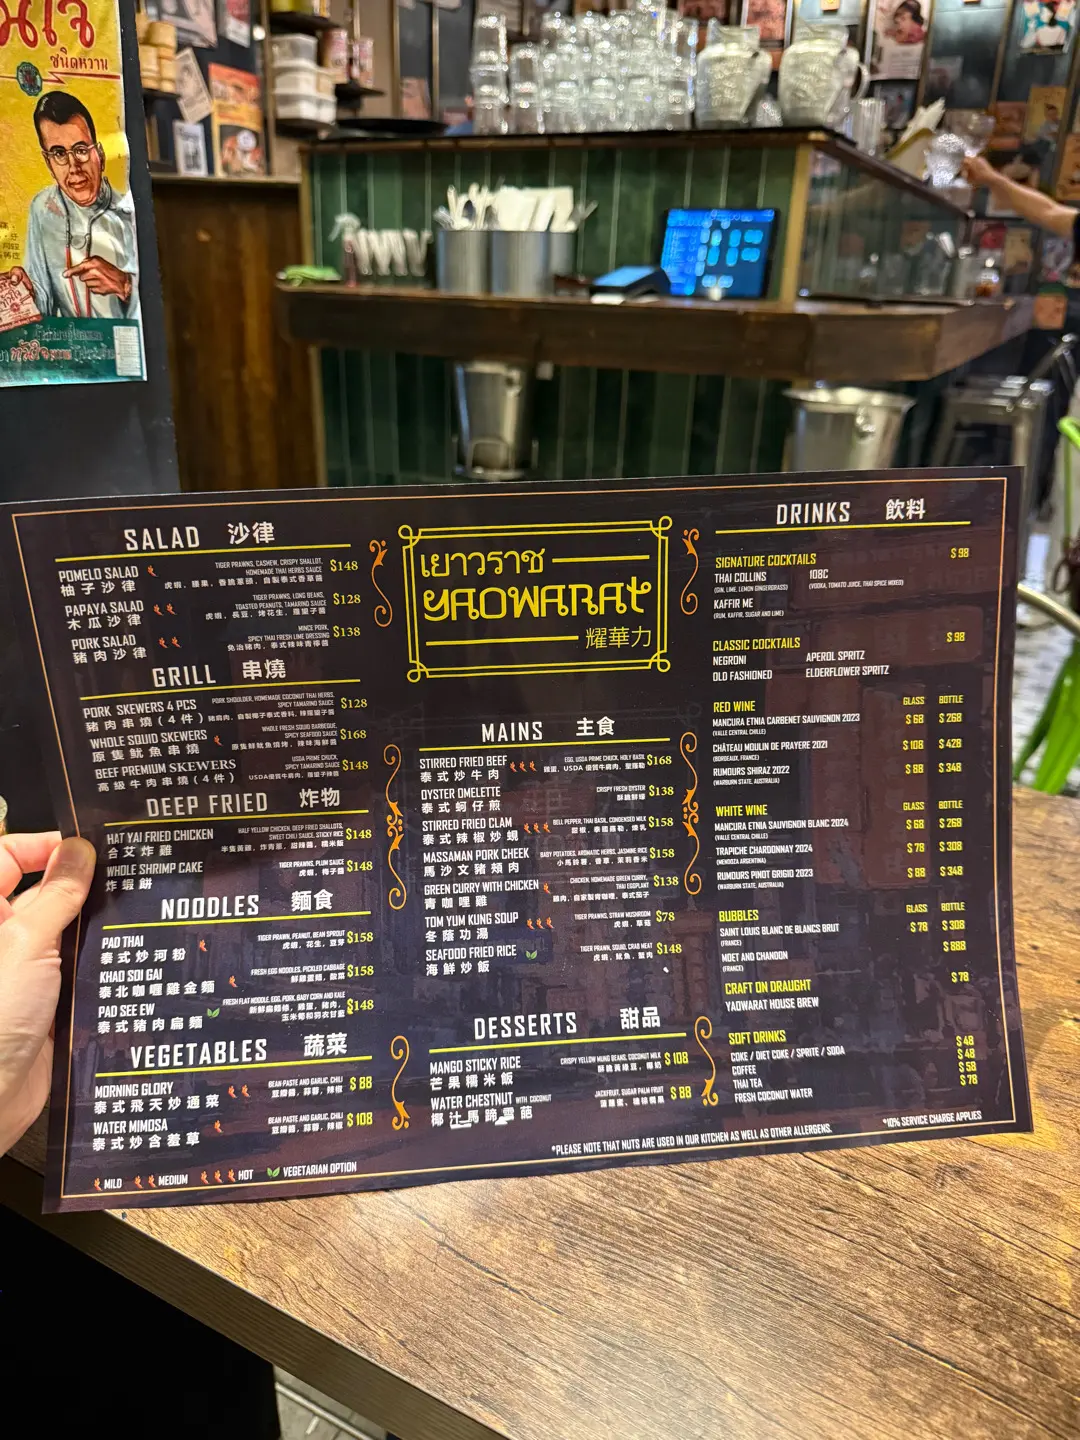 ชนิดหวาน
SALAD 沙律
POMELO SALAD
柚子沙律
TIGER PRAWNS, CASHEW, CRISPY SHALLOT,
HOMEMADE THAI HERBS SAUCE
虎蝦，腰果，香脆蔥頭，自製泰式香草醬
$148
PAPAYA SALAD
木瓜沙律
TIGER PRAWNS, LONG BEANS,
TOASTED PEANUTS, TAMARIND SAUCE
虎蝦，長豆，烤花生，羅望子醬
$128
PORK SALAD
豬肉沙律
MINCE PORK,
SPICY THAI FRESH LIME DRESSING
免治豬肉，泰式辣味青檸醬
$138
GRILL 串燒
PORK SKEWERS 4 PCS
豬肉串燒(4件)
PORK SHOULDER, HOMEMADE COCONUT THAI HERBS,
SPICY TAMARIND SAUCE
豬肩肉，自製椰子泰式香料，辣羅望子醬
$128
WHOLE SQUID SKEWERS
原隻魷魚串燒
WHOLE FRESH SQUID BARBEQUE,
SPICY SEAFOOD SAUCE
原隻鮮魷魚燒烤，辣味海鮮醬
$168
BEEF PREMIUM SKEWERS
高級牛肉串燒(4件)
USDA PRIME CHUCK,
SPICY TAMARIND SAUCE
USDA優質牛肩肉，羅望子辣醬
$148
DEEP FRIED 炸物
HAT YAI FRIED CHICKEN
合艾炸雞
HALF YELLOW CHICKEN, DEEP FRIED SHALLOTS,
SWEET CHILI SAUCE, STICKY RICE
半隻黃雞，炸青蔥，甜辣醬，糯米飯
$148
WHOLE SHRIMP CAKE
炸蝦餅
TIGER PRAWNS, PLUM SAUCE
虎蝦，梅子醬
$148
NOODLES 麵食
PAD THAI
泰式炒河粉
TIGER PRAWN, PEANUT, BEAN SPROUT
虎蝦，花生，豆芽
$158
KHAO SOI GAI
泰北咖喱雞金麵
FRESH EGG NOODLES, PICKLED CABBAGE
鮮雞蛋麵，酸菜
$158
PAD SEE EW
泰式豬肉扁麵
FRESH FLAT NOODLE, EGG, PORK, BABY CORN AND KALE
新鮮扁麵條，雞蛋，豬肉，
玉米筍和羽衣甘藍
$148
VEGETABLES 蔬菜
MORNING GLORY
泰式飛天炒通菜
BEAN PASTE AND GARLIC, CHILI
豆瓣醬，蒜蓉，辣椒
$ 88
WATER MIMOSA
泰式炒含羞草
BEAN PASTE AND GARLIC, CHILI
豆瓣醬，蒜蓉，辣椒
$ 108
MILD MEDIUM HOT VEGETARIAN OPTION
เยาวราช
YAOWARAT
耀華力
MAINS 主食
STIRRED FRIED BEEF
泰式炒牛肉
EGG, USDA PRIME CHUCK, HOLY BASIL
雞蛋，USDA 優質牛肩肉，聖羅勒
$168
OYSTER OMELETTE
泰式蚵仔煎
CRISPY FRESH OYSTER
酥脆鮮蠔
$138
STIRRED FRIED CLAM
泰式辣椒炒蜆
BELL PEPPER, THAI BASIL, CONDENSED MILK
甜椒，泰國羅勒，煉乳
$158
MASSAMAN PORK CHEEK
馬沙文豬頰肉
BABY POTATOES, AROMATIC HERBS, JASMINE RICE
小馬鈴薯，香草，茉莉香米
$158
GREEN CURRY WITH CHICKEN
青咖喱雞
CHICKEN, HOMEMADE GREEN CURRY,
THAI EGGPLANT
雞肉，自家製青咖喱，泰式茄子
$138
TOM YUM KUNG SOUP
冬蔭功湯
TIGER PRAWNS, STRAW MUSHROOM
虎蝦，草菇
$78
SEAFOOD FRIED RICE
海鮮炒飯
TIGER PRAWN, SQUID, CRAB MEAT
虎蝦，魷魚，蟹肉
$148
DESSERTS 甜品
MANGO STICKY RICE
芒果糯米飯
CRISPY YELLOW MUNG BEANS, COCONUT MILK
酥脆黃綠豆，椰奶
$ 108
WATER CHESTNUT WITH COCONUT
椰汁馬蹄雪葩
JACKFRUIT, SUGAR PALM FRUIT
菠蘿蜜，糖棕櫚果
$ 88
DRINKS 飲料
SIGNATURE COCKTAILS $ 98
THAI COLLINS
(GIN, LIME, LEMON GINGERGRASS)
108C
(VODKA, TOMATO JUICE, THAI SPICE MIXED)
KAFFIR ME
(RUM, KAFFIR, SUGAR AND LIME)
CLASSIC COCKTAILS $ 98
NEGRONI APEROL SPRITZ
OLD FASHIONED ELDERFLOWER SPRITZ
RED WINE GLASS BOTTLE
MANCURA ETNIA CARBENET SAUVIGNON 2023 $ 68 $ 268
(VALLE CENTRAL CHILLE)
CHÂTEAU MOULIN DE PRAYERE 2021 $ 108 $ 428
(BORDEAUX, FRANCE)
RUMOURS SHIRAZ 2022 $ 88 $ 348
(WARBURN STATE, AUSTRALIA)
WHITE WINE GLASS BOTTLE
MANCURA ETNIA SAUVIGNON BLANC 2024 $ 68 $ 268
(VALLE CENTRAL CHILLE)
TRAPICHE CHARDONNAY 2024 $ 78 $ 308
(MENDOZA ARGENTINA)
RUMOURS PINOT GRIGIO 2023 $ 88 $ 348
(WARBURN STATE, AUSTRALIA)
BUBBLES GLASS BOTTLE
SAINT LOUIS BLANC DE BLANCS BRUT $ 78 $ 308
(FRANCE)
MOET AND CHANDON $ 888
(FRANCE)
CRAFT ON DRAUGHT $ 78
YAOWARAT HOUSE BREW
SOFT DRINKS
COKE / DIET COKE / SPRITE / SODA $ 48
COFFEE $ 48
THAI TEA $ 58
FRESH COCONUT WATER $ 78
*PLEASE NOTE THAT NUTS ARE USED IN OUR KITCHEN AS WELL AS OTHER ALLERGENS.
*10% SERVICE CHARGE APPLIES